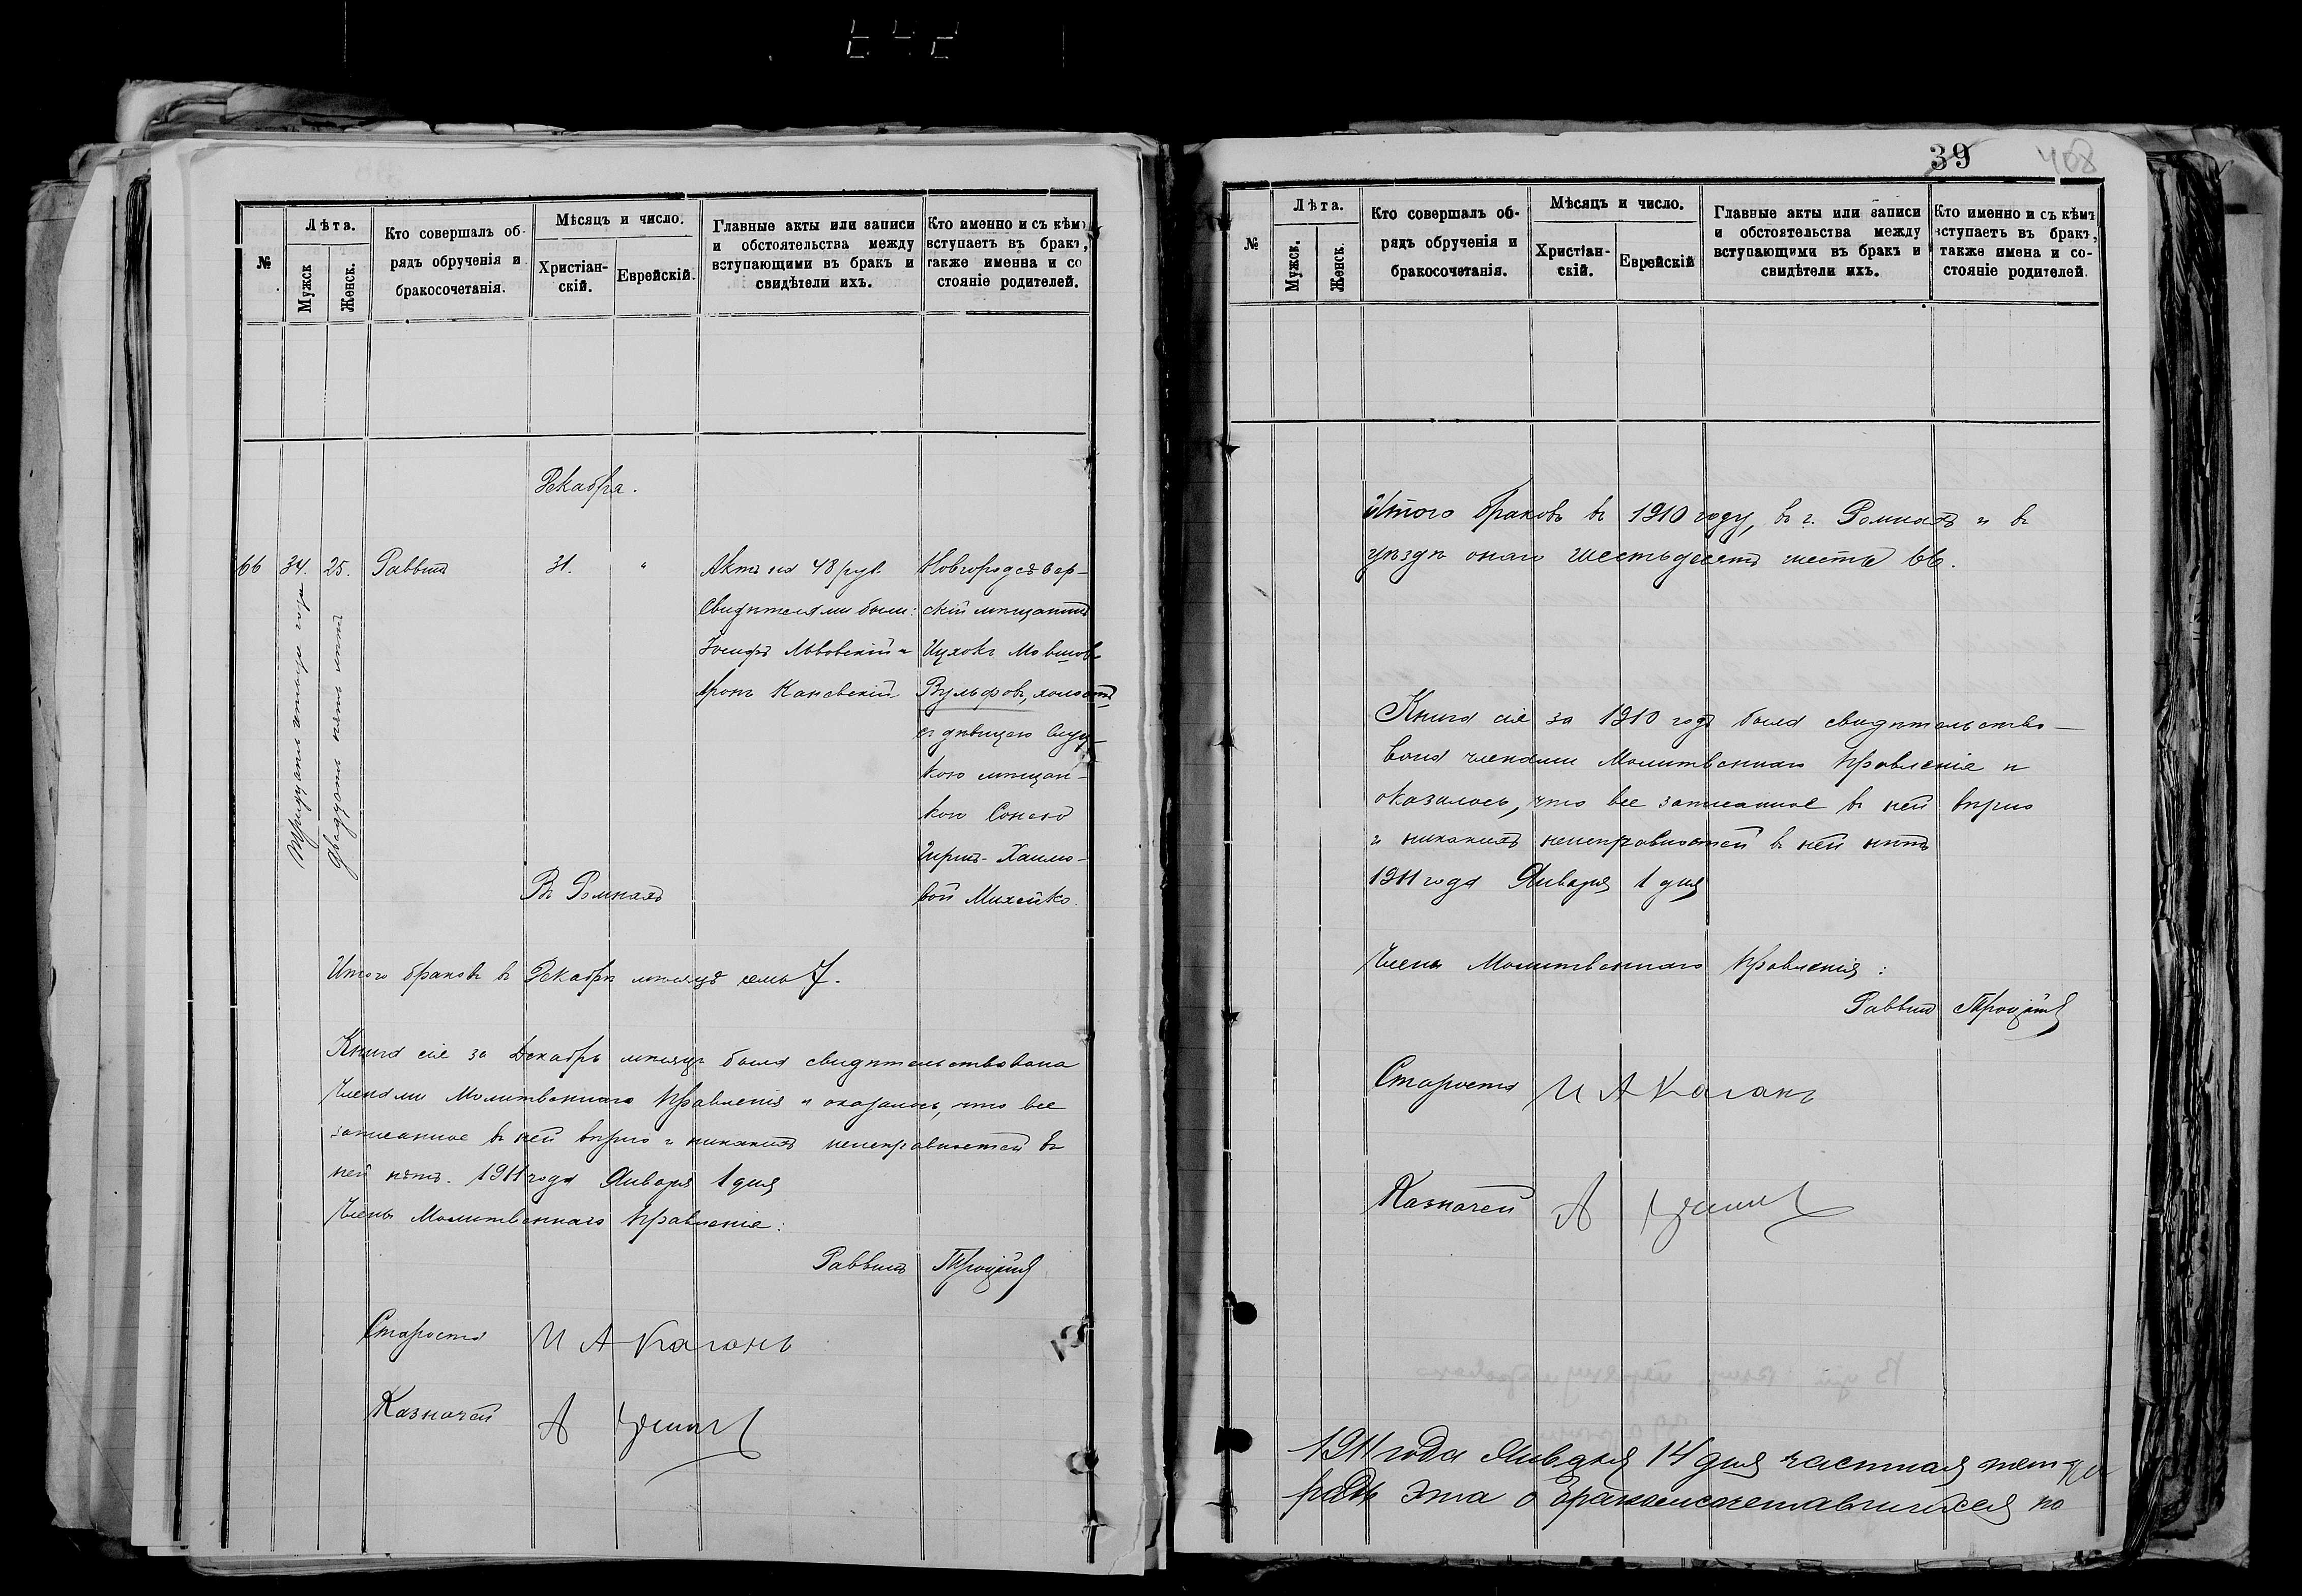 №
Лѣта.
Мужск
Женск.
Кто совершалъ об-
рядъ обрученія и
бракосочетанія.
Мѣсяцъ и число.
Христіан-
скій.
Еврейскій.
Главные акты или записи
и обстоятельства между
вступающими въ бракъ и
свидѣтели ихъ.
Кто именно и съ кѣмъ
вступаетъ въ бракъ,
также имена и со
стояніе родителей.
Декабря.
66 34. 25. Раввинъ 31. " Актъ на 48 руб. Новгородсѣвер-
Тридцать четыре года
Двадцать пять лѣтъ
Свидѣтелями были: скій мѣщанинъ
Іосифъ Львовскій и Ицхокъ Мовшовъ
Аронъ Каневскій Вульфовъ, холостъ
съ дѣвицею Слуц-
кою мѣщан-
кою
Хаимо-
вой Михейко.
Въ Ромнахъ
Итого браковъ въ Декабрѣ мѣсяцѣ семь 7.
Книга сія за Декабрь мѣсяцъ была свидѣтельствована
Членами Молитвеннаго Правленія и оказалось, что все
записанное въ ней вѣрно и никакихъ неисправностей въ
ней нѣтъ. 1911 года Января 1 дня
Члены Молитвеннаго Правленія:
Раввинъ
Староста И А Каганъ
Казначей А
39
408
№
Лѣта.
Мужск.
Женск.
Кто совершалъ об-
рядъ обрученія и
бракосочетанія.
Мѣсяцъ и число.
Христіан-
скій.
Еврейскій
Главные акты или записи
и обстоятельства между
вступающими въ бракъ и
свидѣтели ихъ.
Кто именно и съ кѣмъ
вступаетъ въ бракъ,
также имена и со-
стояніе родителей.
Итого браковъ въ 1910 году, въ г. Ромнахъ и въ
уѣздѣ онаго шестьдесятъ шесть 66.
Книга сія за 1910 годъ была свидѣтельство-
вана членами Молитвеннаго Правленія и
оказалось, что все записанное въ ней вѣрно
и никакихъ неисправностей въ ней нѣтъ
1911 года Января 1 дня
Члены Молитвеннаго Правленія:
Раввинъ
Староста И А Каганъ
Казначей А
1911 года Января 14 дня частная тет
радь эта о бракосочетавшихся по